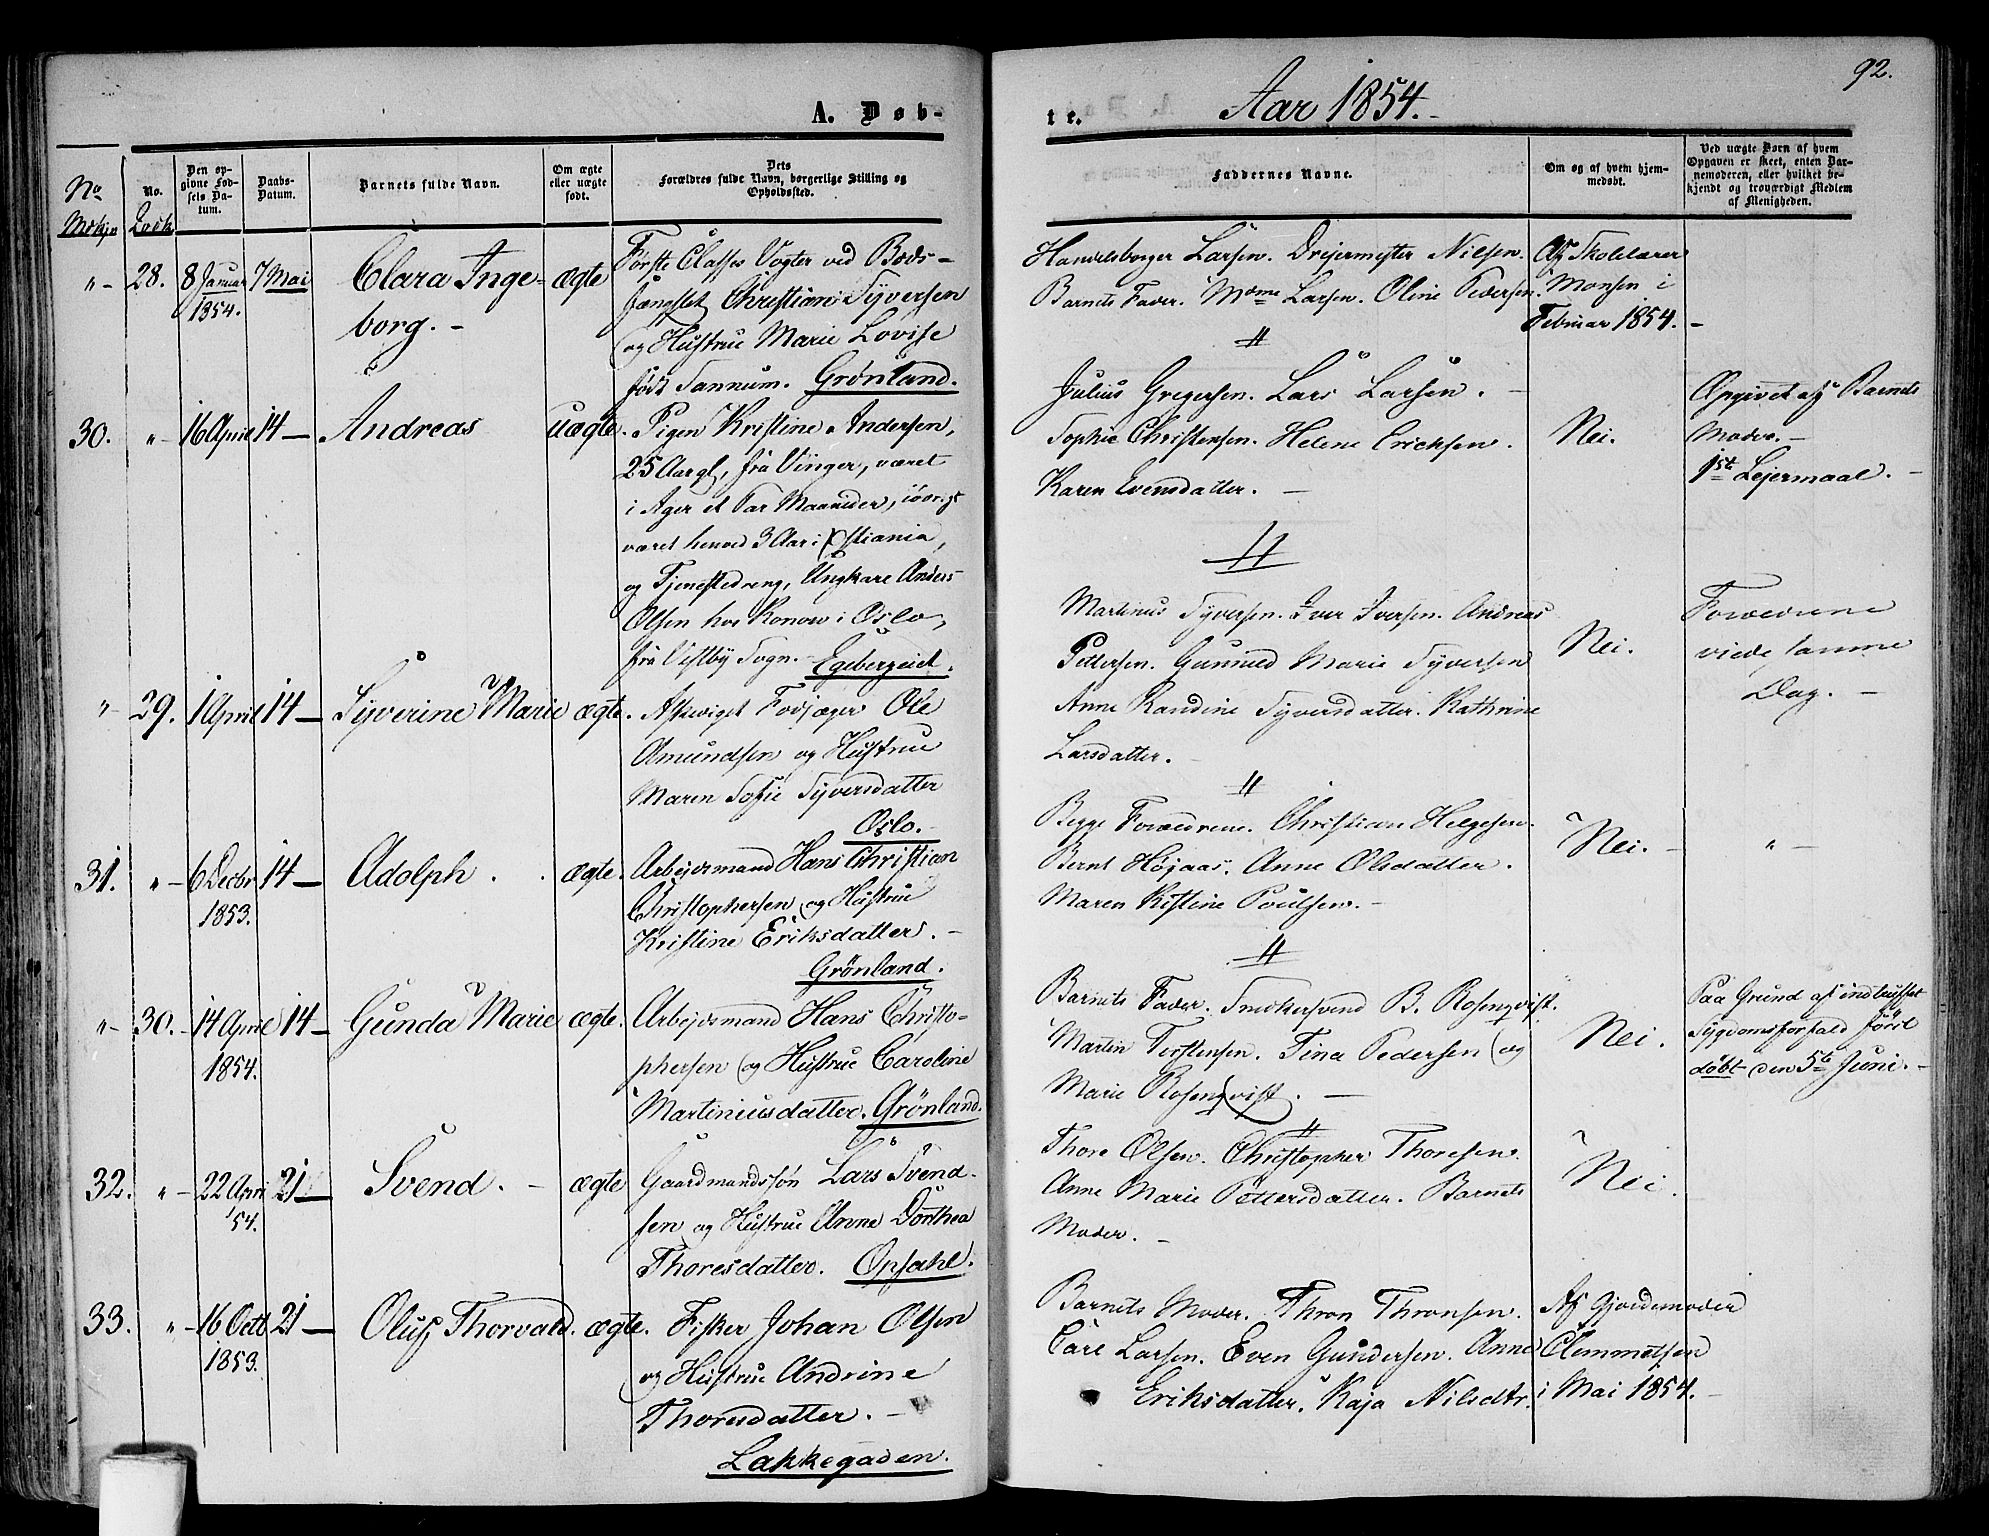 92.
A. Døb-
te.
Aar 1854.-
No
Mdkjøn
No.
Qvdk
Den op-
givne Fød-
sels Da-
tum.
Daabs-
Datum.
Barnets fulde Navn.
Om ægte
eller uægte
født.
Dets
Forældres fulde Navn, borgerlige Stilling og
Opholdssted.
Faddernes Navne.
Om og af hvem hjem-
medøbt.
Ved uægte Børn af hvem
Opgaven er skeet, enten Bar-
nemoderen, eller hvilket be-
kjendt og troværdigt Medlem
af Menigheden.
"- 28. 8 Januar 1854. 7 Mai
Clara Inge-
borg. -
ægte
Første Classes Vogter ved Bods-
fængslet Christian Syversen
og Hustrue Marie Lovise
født Sannum. Grønland.
Handelsborger Larsen. Dreiermester Nilsen.
Barnets Fader. Mdme Larsen. Oline Pedersen.
Af Skolelærer
Monsen i
Februar 1854. -
30. "- 16 April 14 -
Andreas
uægte.
Pigen Kristine Andersen,
25 Aar gl, fra Vinger, været
i Ager et Par Maaneder, iøvrigt
været henved 3 Aar i Xstiania,
og Tjenestedreng, Ungkarl Anders
Olsen hos Konow i Oslo,
fra Vestby Sogn. - Egebergeiet.
Julius Gregersen. Lars Larsen. -
Sophie Christensen. Helene Ericksen.
Karen Evensdatter. -
Nei.
Opgivet af Barnets
Moder. -
1ste Lejermaal. -
"- 29. 1 April 14 -
Syverine Marie
ægte.
Afskediget Fodjæger Ole
Amundsen og Hustrue
Maren Sofie Syversdatter
Oslo.
Martinus Syversen. Iver Iversen. Andreas
Pettersen. Gunild Marie Syversen
Anne Randine Syversdatter. Kathrine
Larsdatter. -
Nei.
Forældrene
viede samme
Dag. -
31. "- 6 Decbr 1853. 14 -
Adolph.
ægte.
Arbejdsmand Hans Christian
Christophersen og Hustrue
Kristine Eriksdatter. -
Grønland.
Begge Forældrene. Christian Helgesen.
Bernt Højaas. Anne Olsdatter.
Maren Kistine Poulsen. -
Nei. -
"-
"- 30. - 14 April 1854. 14 -
Gunda Marie
ægte.
Arbejdsmand Hans Christo-
phersen og Hustrue Caroline
Martiniusdatter. Grønland.
Barnets Fader. Snedkersvend B. Rosenqvist.
Martin Torstensen. Tina Pedersen og
Marie Rosenqvist. -
Nei.
Paa Grund af indtruffet
Sygdomsforfald først
døbt den 5te Juni. -
32. "- 22 April '54. 21 -
Svend. -
ægte
Gaardmandssøn Lars Svend-
sen og Hustrue Anne Dorthea
Thoresdatter. Opsahl.
Thore Olsen. Christopher Thoresen.
Anne Marie Pettersdatter. Barnets
Moder. -
Nei.
33. "- 16 Octb 1853. 21 -
Oluf Thorvald.
ægte.
Fisker Johan Olsen
og Hustrue Andrine
Thoresdatter. -
Lakkegaden.
Barnets Moder. Thron Thronsen.
Carl Larsen. Even Gundersen. Anne
Eriksdatter. Kaja Nilsdtr.
Af Gjordemoder
Clemmetsen
i Mai 1854. -